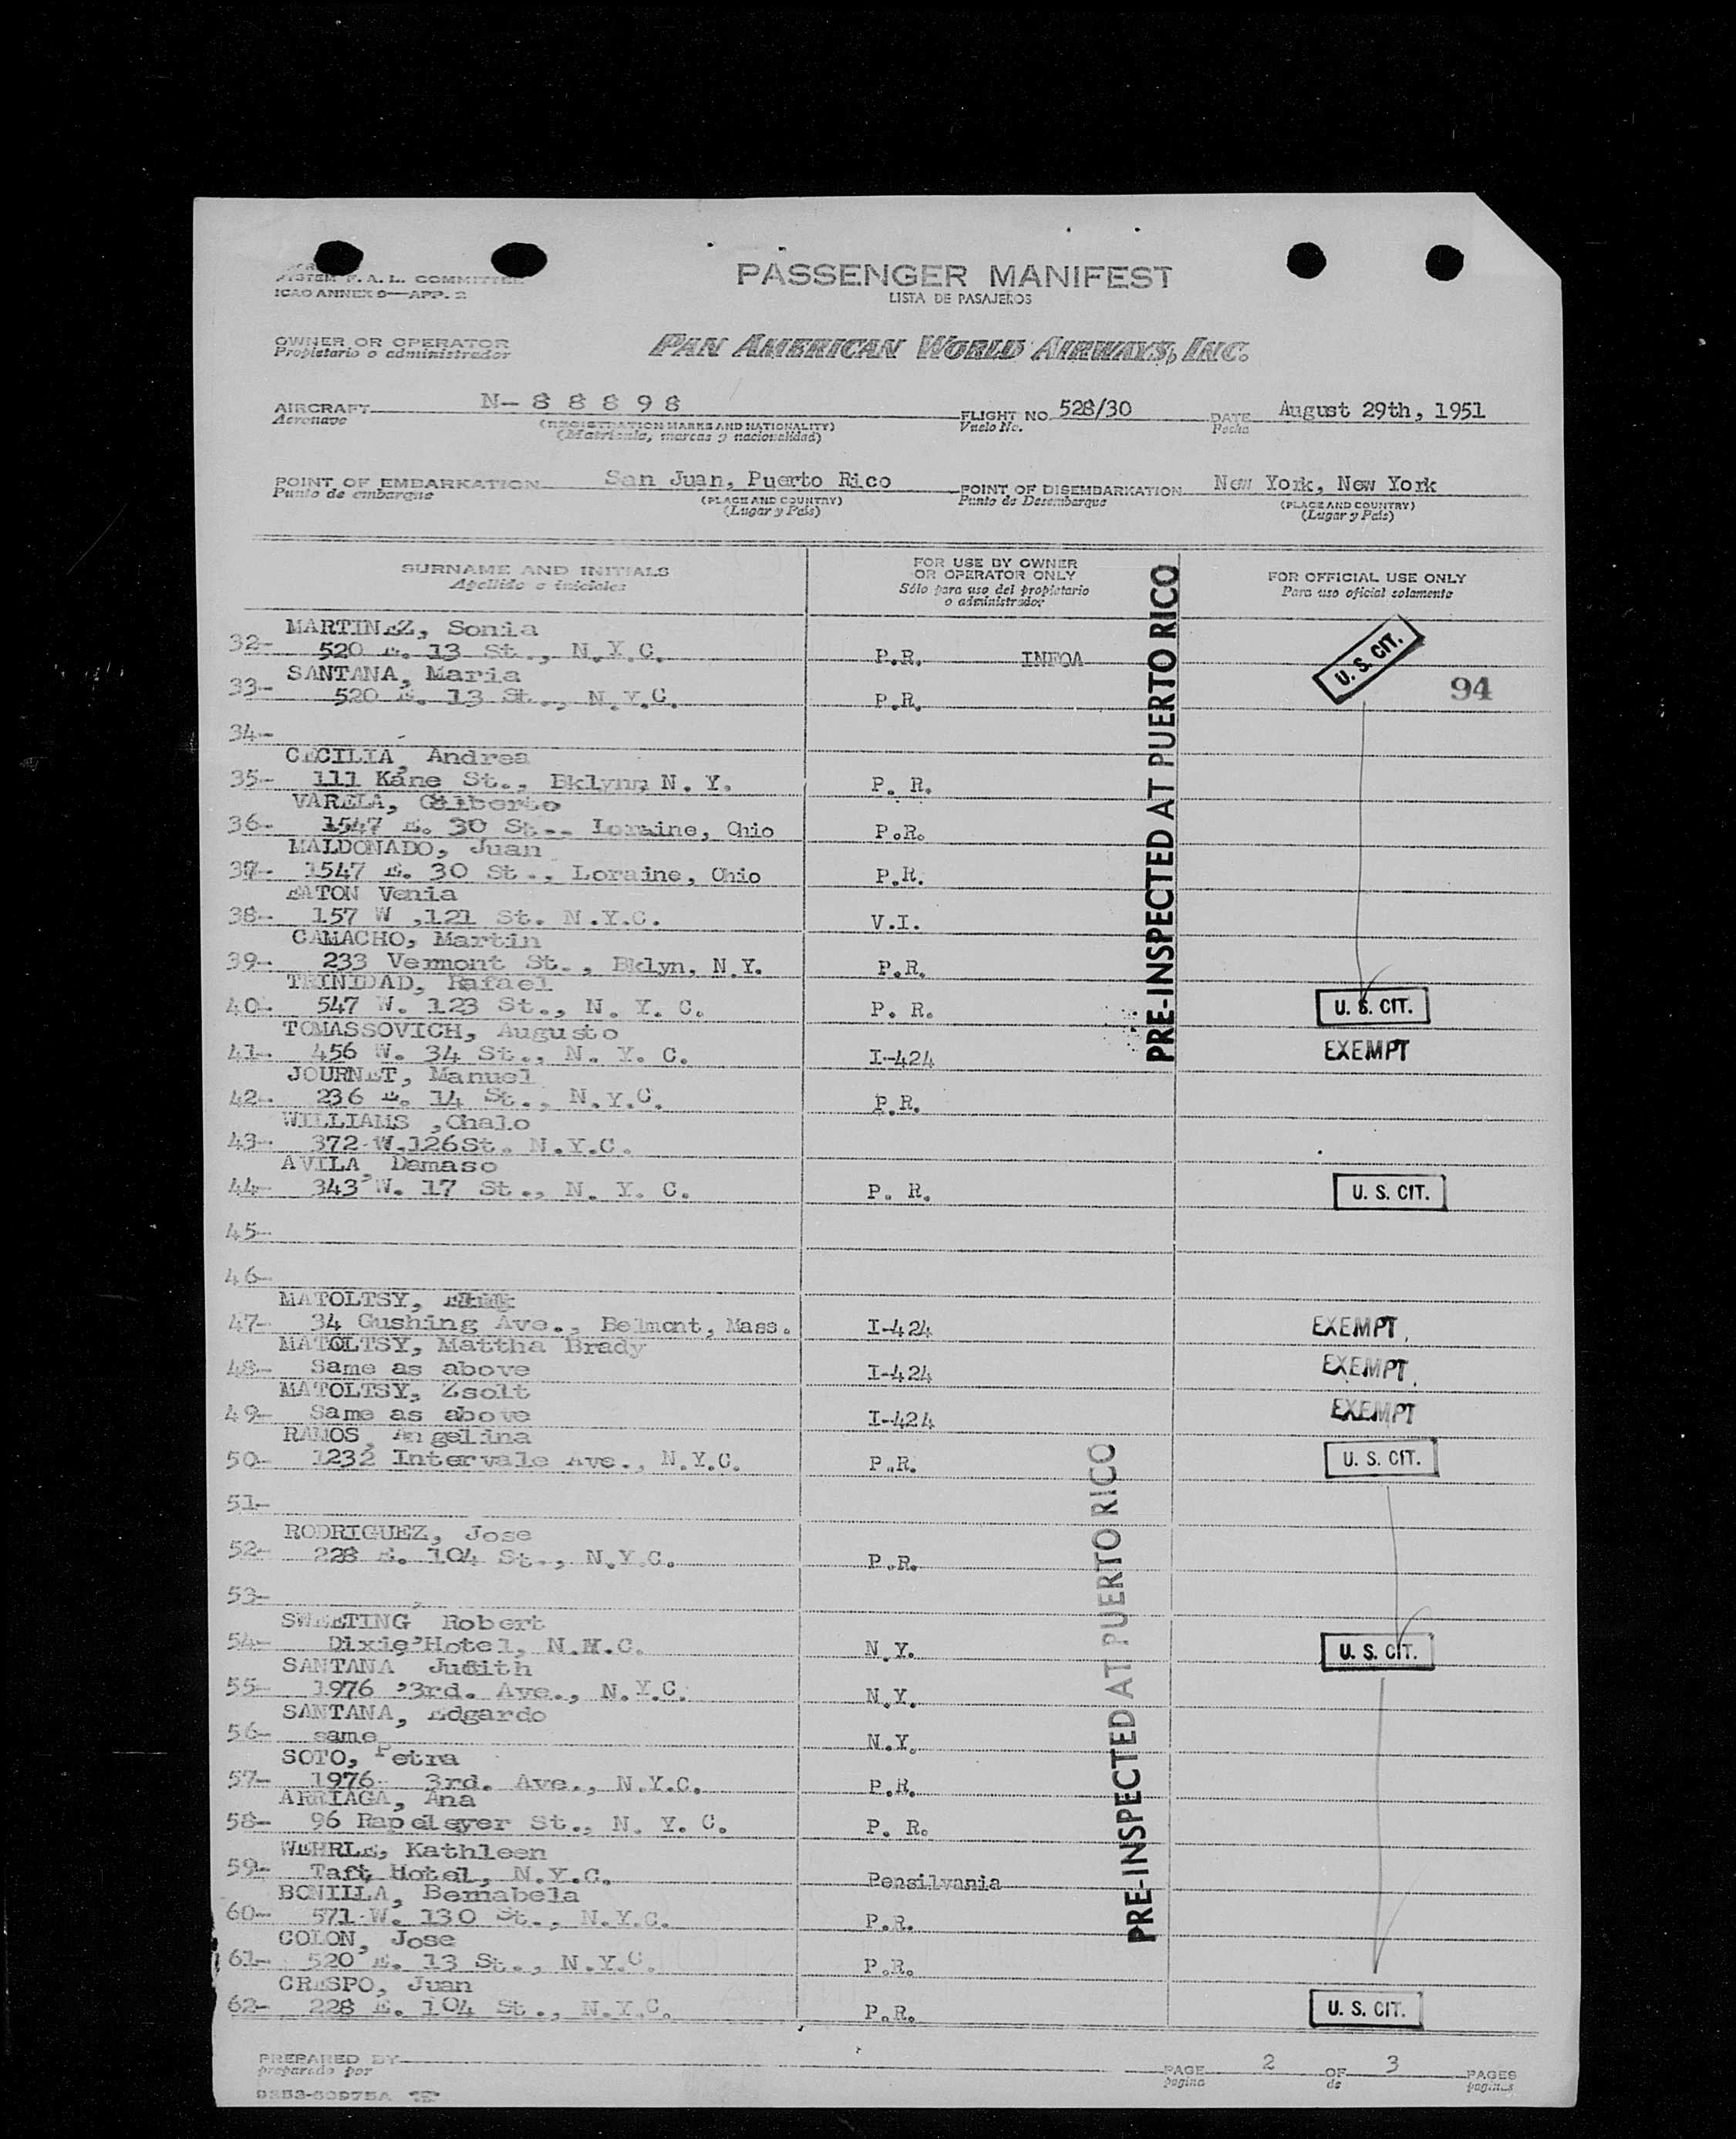 SYSTEM F. A. L. COMMITTEE
ICAO ANNEX 9—APP. 2
PASSENGER MANIFEST
LISTA DE PASAJEROS
OWNER OR OPERATOR
Propietario o administrador
PAN AMERICAN WORLD AIRWAYS, INC.
AIRCRAFT N-88898 FLIGHT NO. 528/30 DATE August 29th, 1951
Aeronave (REGISTRATION MARKS AND NATIONALITY) Vuelo No. Fecha
(Matrícula, marcas y nacionalidad)
POINT OF EMBARKATION San Juan, Puerto Rico POINT OF DISEMBARKATION New York, New York
Punto de embarque (PLACE AND COUNTRY) Punto de Desembarque (PLACE AND COUNTRY)
(Lugar y País) (Lugar y País)
SURNAME AND INITIALS FOR USE BY OWNER OR OPERATOR ONLY FOR OFFICIAL USE ONLY
Apellido e iniciales Sólo para uso del propietario o administrador Para uso oficial solamente
PRE-INSPECTED AT PUERTO RICO
MARTINEZ, Sonia
32- 520 E. 13 St., N.Y.C. P.R. INFOA U. S. CIT.
SANTANA, Maria
33- 520 E. 13 St., N.Y.C. P.R. 94
34-
CECILIA, Andrea
35- 111 Kane St., Bklynn N. Y. P. R.
VARELA, Gilberto
36- 1547 E. 30 St.. Loraine, Ohio P.R.
MALDONADO, Juan
37- 1547 E. 30 St., Loraine, Ohio P.R.
EATON Venia
38- 157 W ,121 St. N.Y.C. V.I.
CAMACHO, Martin
39- 233 Vermont St., Bklyn, N.Y. P.R.
TRINIDAD, Rafael
40- 547 W. 123 St., N. Y. C. P. R. U. S. CIT.
TOMASSOVICH, Augusto
41- 456 W. 34 St., N. Y. C. I-424 EXEMPT
JOURNET, Manuel
42- 236 E. 14 St., N.Y.C. P.R.
WILLIAMS ,Chalo
43- 372 W.126St. N.Y.C.
AVILA, Damaso
44- 343 W. 17 St., N. Y. C. P. R. U. S. CIT.
45-
46-
MATOLTSY,
47- 34 Cushing Ave., Belmont, Mass. I-424 EXEMPT
MATOLTSY, Mattha Brady
48- Same as above I-424 EXEMPT
MATOLTSY, Zsolt
49- Same as above I-424 EXEMPT
RAMOS, Angelina
50- 1232 Intervale Ave., N.Y.C. P.R. U. S. CIT.
PRE-INSPECTED AT PUERTO RICO
51-
RODRIGUEZ, Jose
52- 228 E. 104 St., N.Y.C. P.R.
53-
SWEETING Robert
54- Dixie'Hotel, N.M.C. N.Y. U. S. CIT.
SANTANA Judith
55- 1976 '3rd. Ave., N.Y.C. N.Y.
SANTANA, Edgardo
56- same N.Y.
SOTO, Petra
57- 1976 3rd. Ave., N.Y.C. P.R.
ARRIAGA, Ana
58- 96 Rapeleyer St., N. Y. C. P. R.
WEHRLE, Kathleen
59- Taft Hotel, N.Y.C. Pensilvania
BONILLA, Bernabela
60- 571 W. 130 St., N.Y.C. P.R.
COLON, Jose
61- 520 E. 13 St., N.Y.C. P.R.
CRESPO, Juan
62- 228 E. 104 St., N.Y.C. P.R. U. S. CIT.
PREPARED BY PAGE 2 OF 3 PAGES
preparado por pagina de paginas